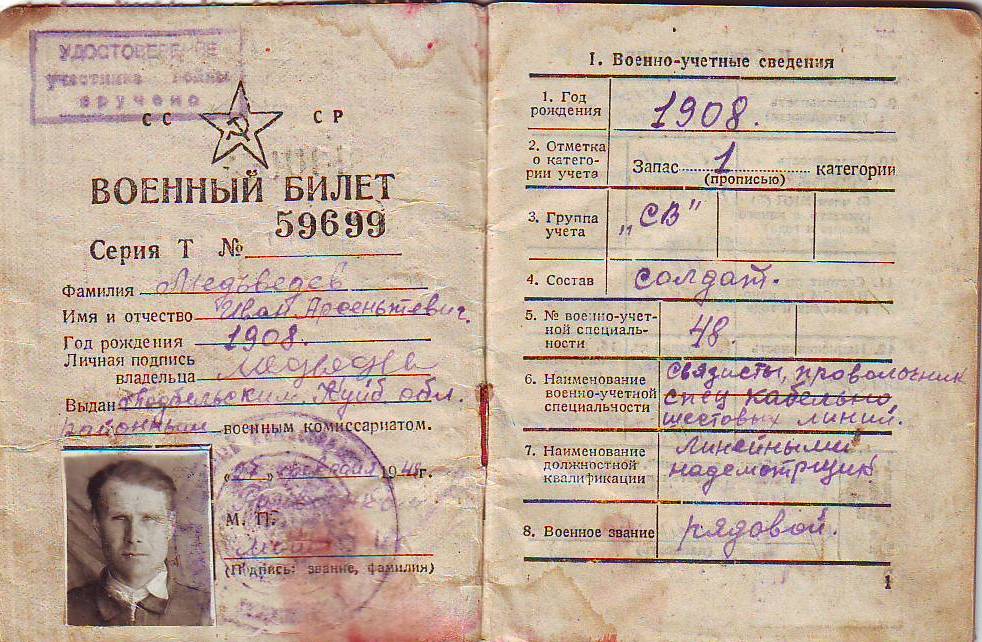 УДОСТОВЕРЕНИЕ
участника войны
вручено
СС СР
ВОЕННЫЙ БИЛЕТ
59699
Серия Т №
Фамилия Медьведев
Имя и отчество Иван Арсеньтевич.
Год рождения 1908.
Личная подпись
владельца Медведев
Выдан Куйб обл.
районным военным комиссариатом.
1948 г.
М. П.
(Подпись: звание, фамилия)
I. Военно-учетные сведения
1. Год
рождения 1908.
2. Отметка
о катего-
рии учета Запас 1 категории
(прописью)
3. Группа
учета „СВ"
4. Состав солдат.
5. № военно-учет-
ной специаль-
ности 48.
6. Наименование
военно-учетной
специальности связисты, проволочник
спец кабельно
шестовых линий.
7. Наименование
должностной
квалификации линейными
надсмотрщик
8. Военное звание рядовой.
1